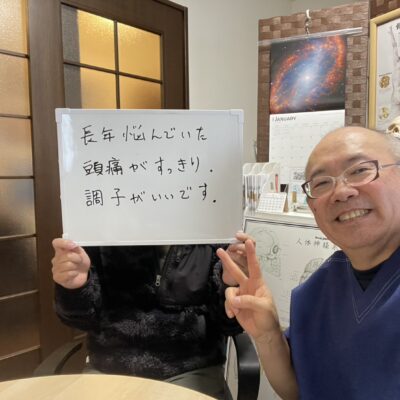 長年悩んでいた
頭痛がすっきり.
調子がいいです.
1 JANUARY
人体神経